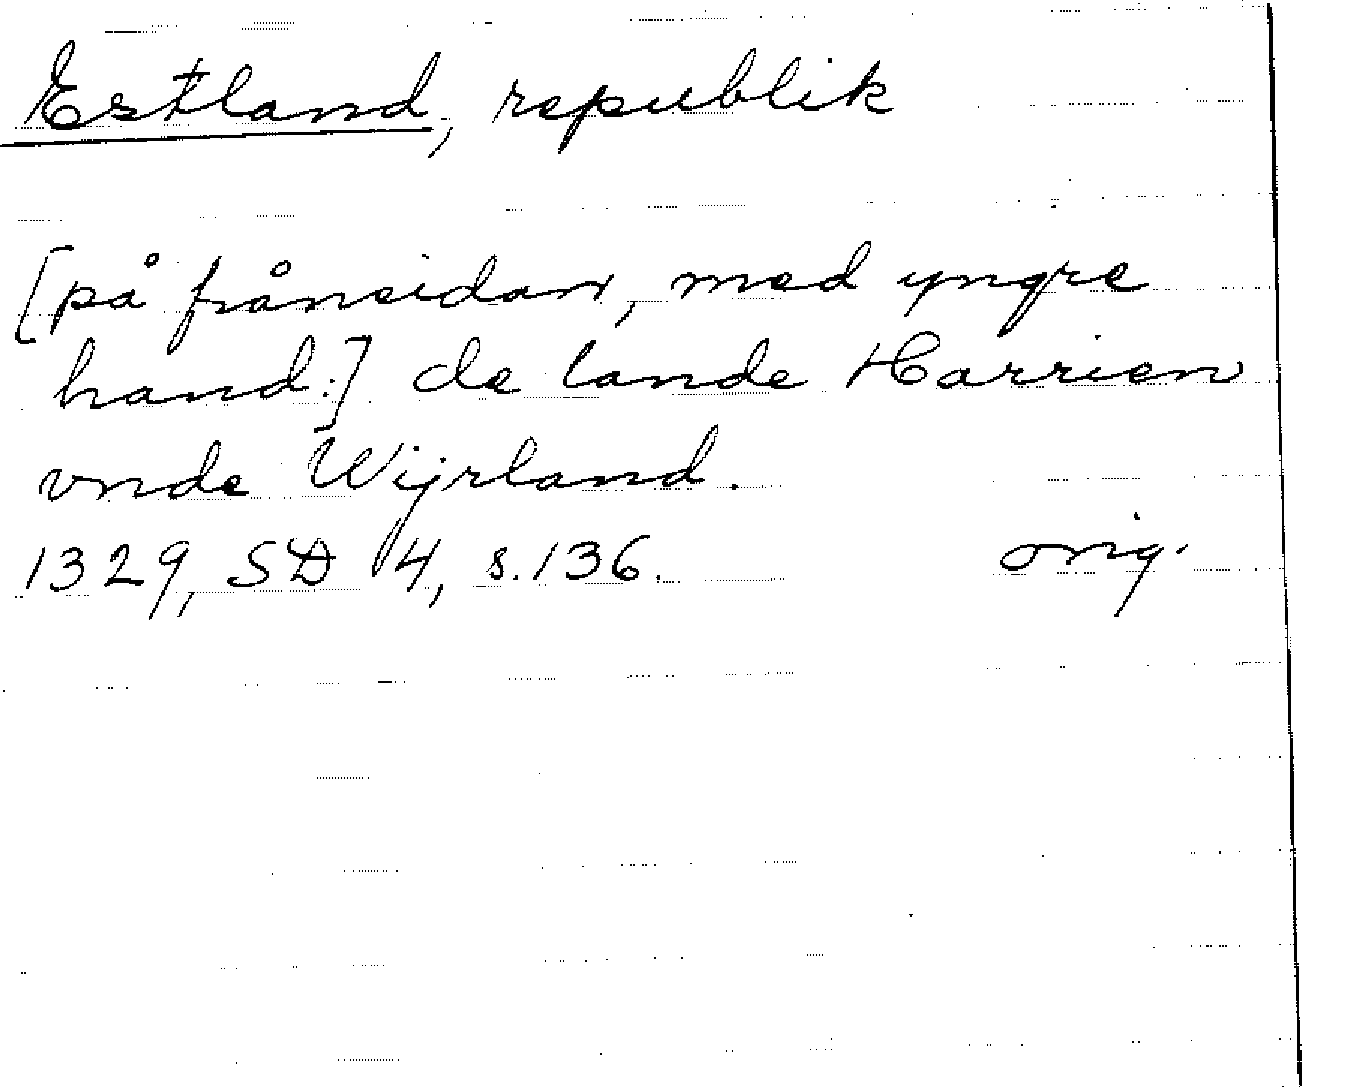 Estland, republik
[på frånsidan, med yngre
hand:] de lande Harrien
vnde Wijrland.
1329, SD 4, s. 136. orig.